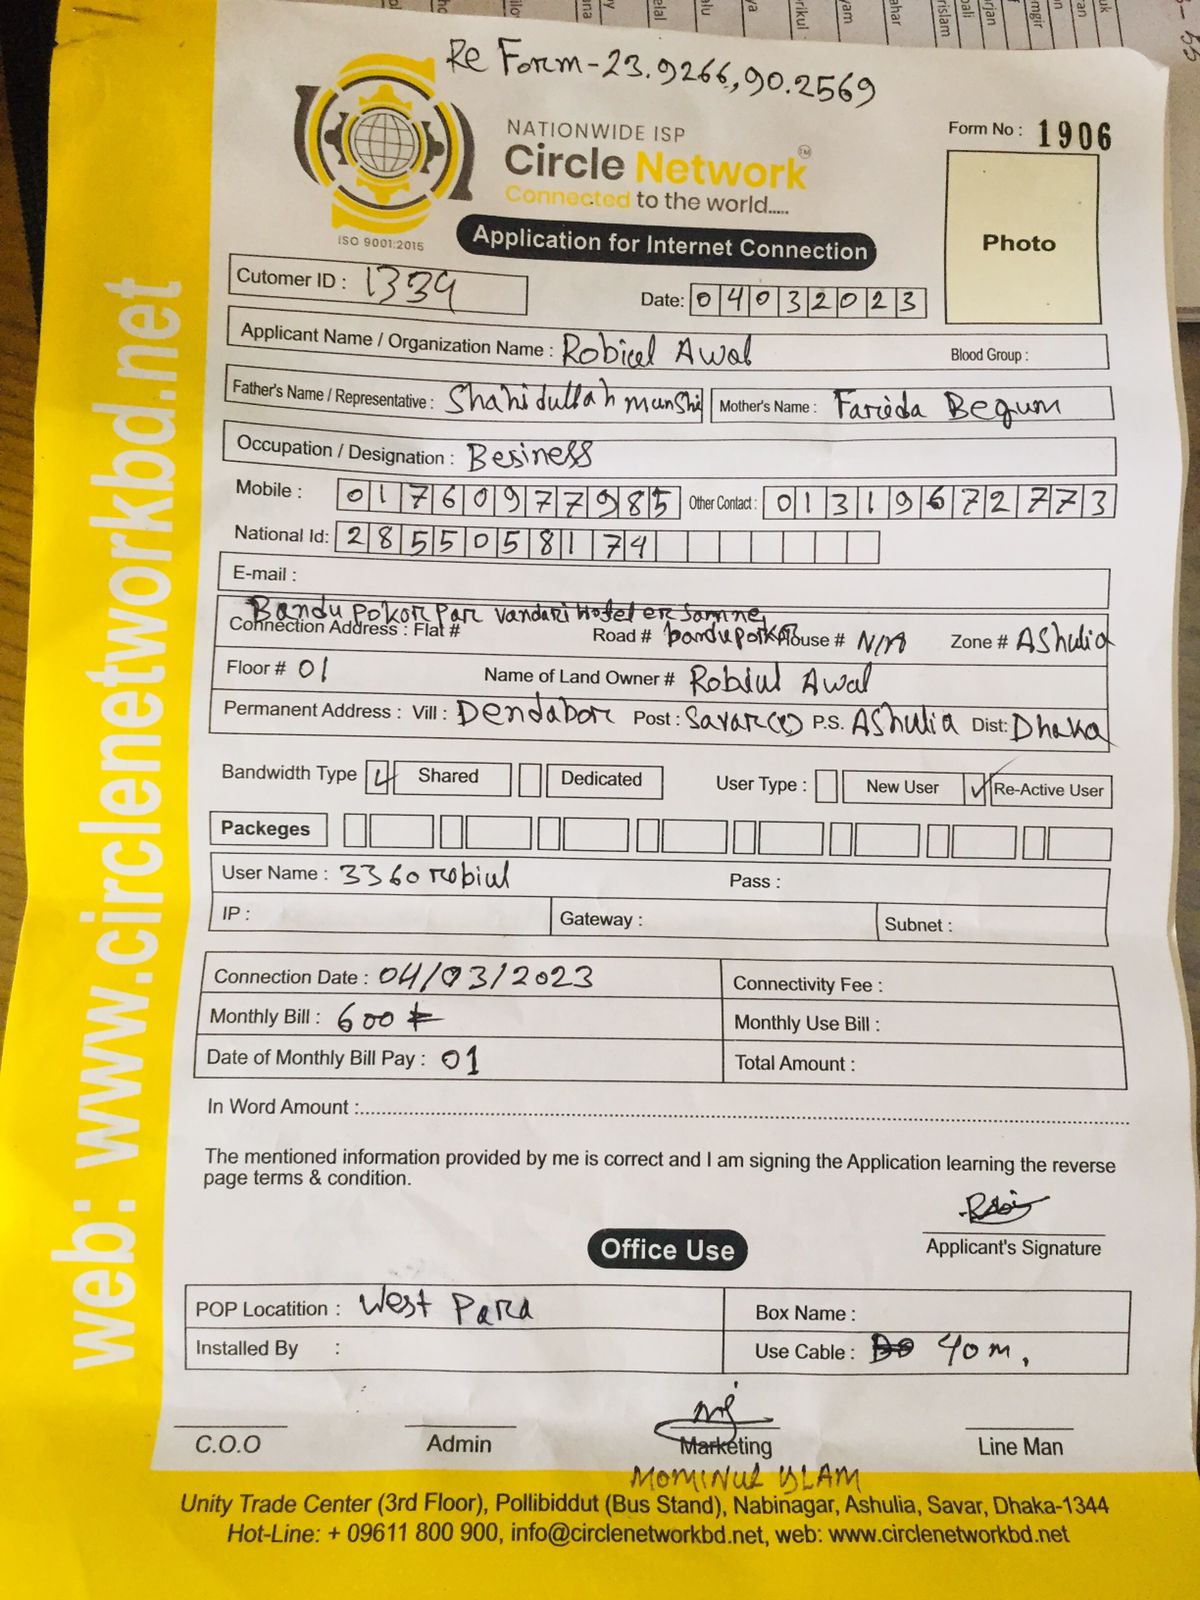 Re Form-23.9266,90.2569
NATIONWIDE ISP
Circle Network TM
Connected to the world.....
ISO 9001:2015
Form No : 1906
Photo
Application for Internet Connection
Cutomer ID : 1339
Date: 04032023
Applicant Name / Organization Name : Robiul Awal Blood Group :
Father's Name / Representative : Shahidullah munshi Mother's Name : Farieda Begum
Occupation / Designation : Besiness
Mobile : 01760977985 Other Contact : 01319672773
National Id: 2855058174
E-mail :
Bandu pokor par vandari Hotel er samne,
Connection Address : Flat # Road # bandupokor House # N/A Zone # Ashulia
Floor # 01 Name of Land Owner # Robiul Awal
Permanent Address : Vill : Dendabor Post : Savar P.S. Ashulia Dist: Dhaka
Bandwidth Type Shared Dedicated User Type : New User ✓ Re-Active User
Packeges
User Name : 3360robiul Pass :
IP : Gateway : Subnet :
Connection Date : 04/03/2023 Connectivity Fee :
Monthly Bill : 600 Monthly Use Bill :
Date of Monthly Bill Pay : 01 Total Amount :
In Word Amount :
The mentioned information provided by me is correct and I am signing the Application learning the reverse
page terms & condition.
Applicant's Signature
Office Use
POP Locatition : West Para Box Name :
Installed By : Use Cable : 40m.
C.O.O Admin Marketing Line Man
MOMINUL ISLAM
Unity Trade Center (3rd Floor), Pollibiddut (Bus Stand), Nabinagar, Ashulia, Savar, Dhaka-1344
Hot-Line: + 09611 800 900, info@circlenetworkbd.net, web: www.circlenetworkbd.net
web: www.circlenetworkbd.net